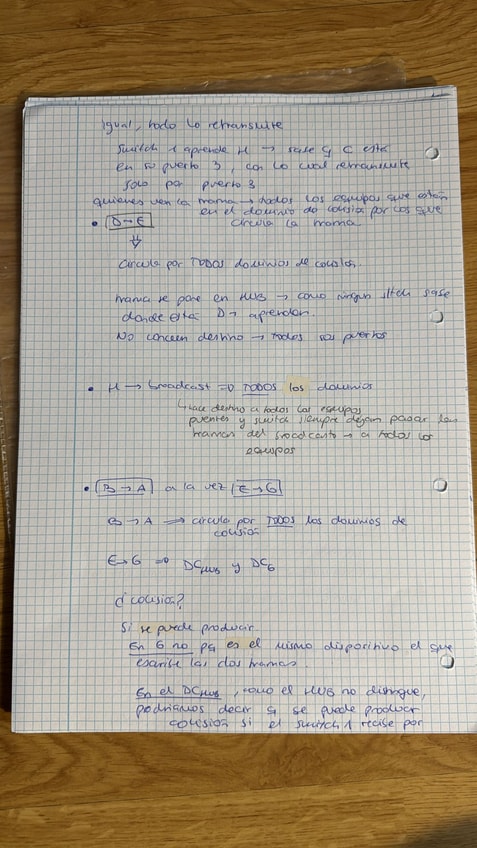 igual, todo lo retransmite
Switch 1 aprende H → sabe q C está
en su puerto 3, con lo cual retransmite
solo por puerto 3
quienes ven la trama → todos los equipos que están
en el dominio de colisión por los que
circula la trama
• D→E
⇓
Circula por TODOS dominios de colisión.
trama se pone en HUB → como ningún sabe
donde está D → aprenden.
No conocen destino → todos sus puertos
• H → broadcast ⇒ TODOS los dominios
↳ hace destino a todos los equipos
puentes y switch siempre dejan pasar las
tramas del broadcast → a todos los
equipos
• B→A a la vez E→G
B→A ⇒ circula por TODOS los dominios de
colisión
E→G ⇒ DC HUB y DC6
¿colisión?
Si se puede producir.
En 6 no pq es el mismo dispositivo el que
escribe las dos tramas.
En el DC HUB, como el HUB no distingue,
podríamos decir q se puede producir
colisión si el switch 1 recibe por